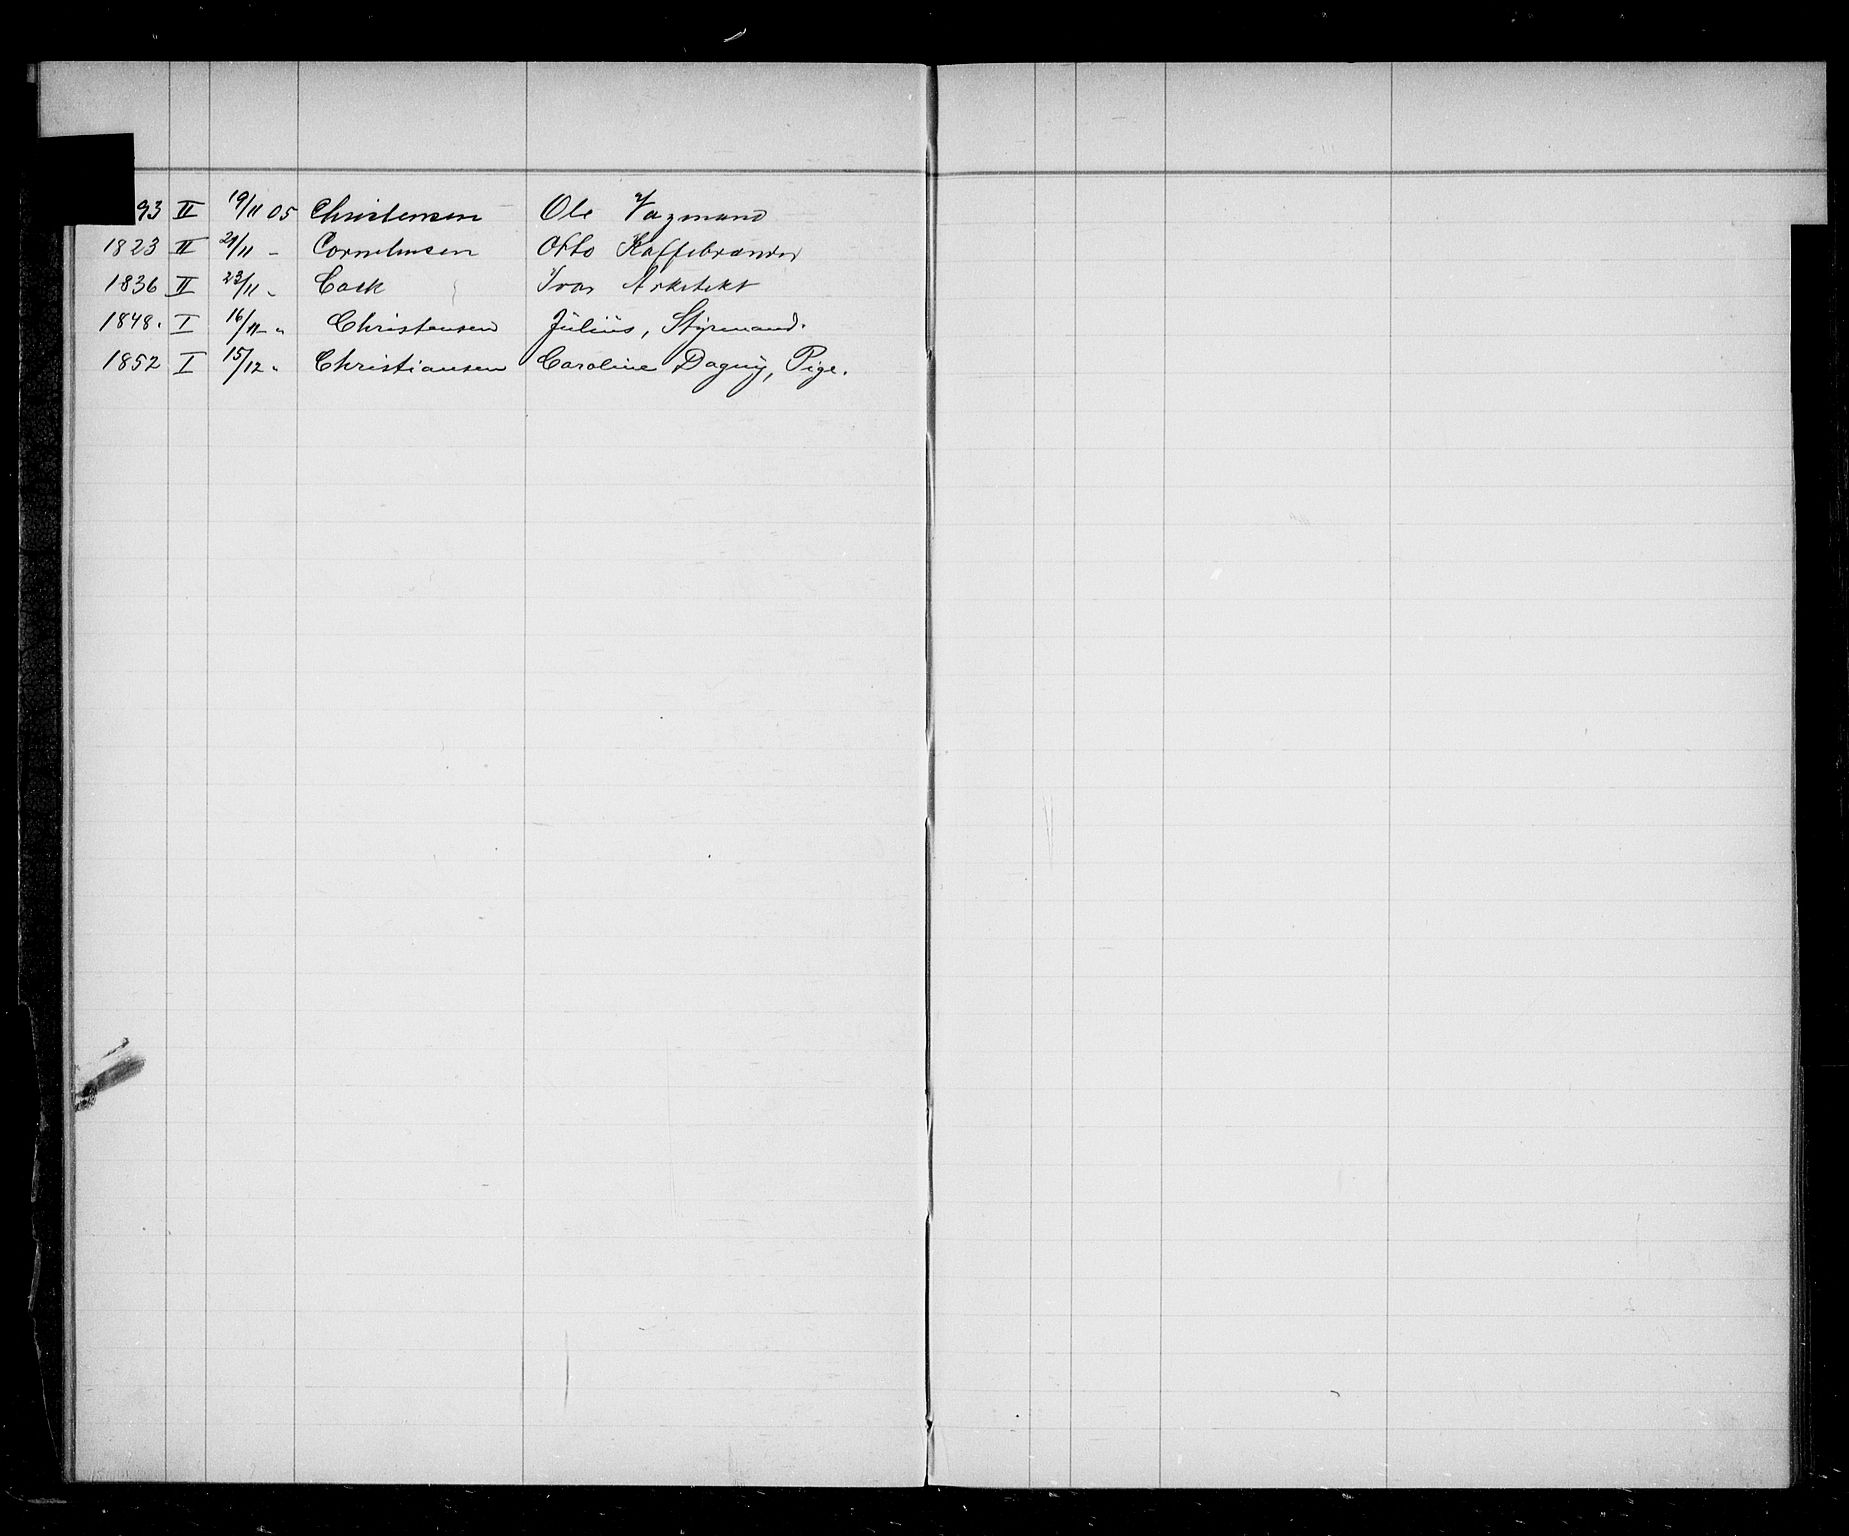 93 II 19/11 05 Christensen Ole Vagmand
1823 II 21/11 - Corneliusen Otto Kaffebrænder
1836 II 23/11 - Cock Ivar Arkitekt
1848. I 16/11 - " Christensen Julius, Styrmand.
1852 I 15/12 " Christiansen Caroline Dagny, Pige.